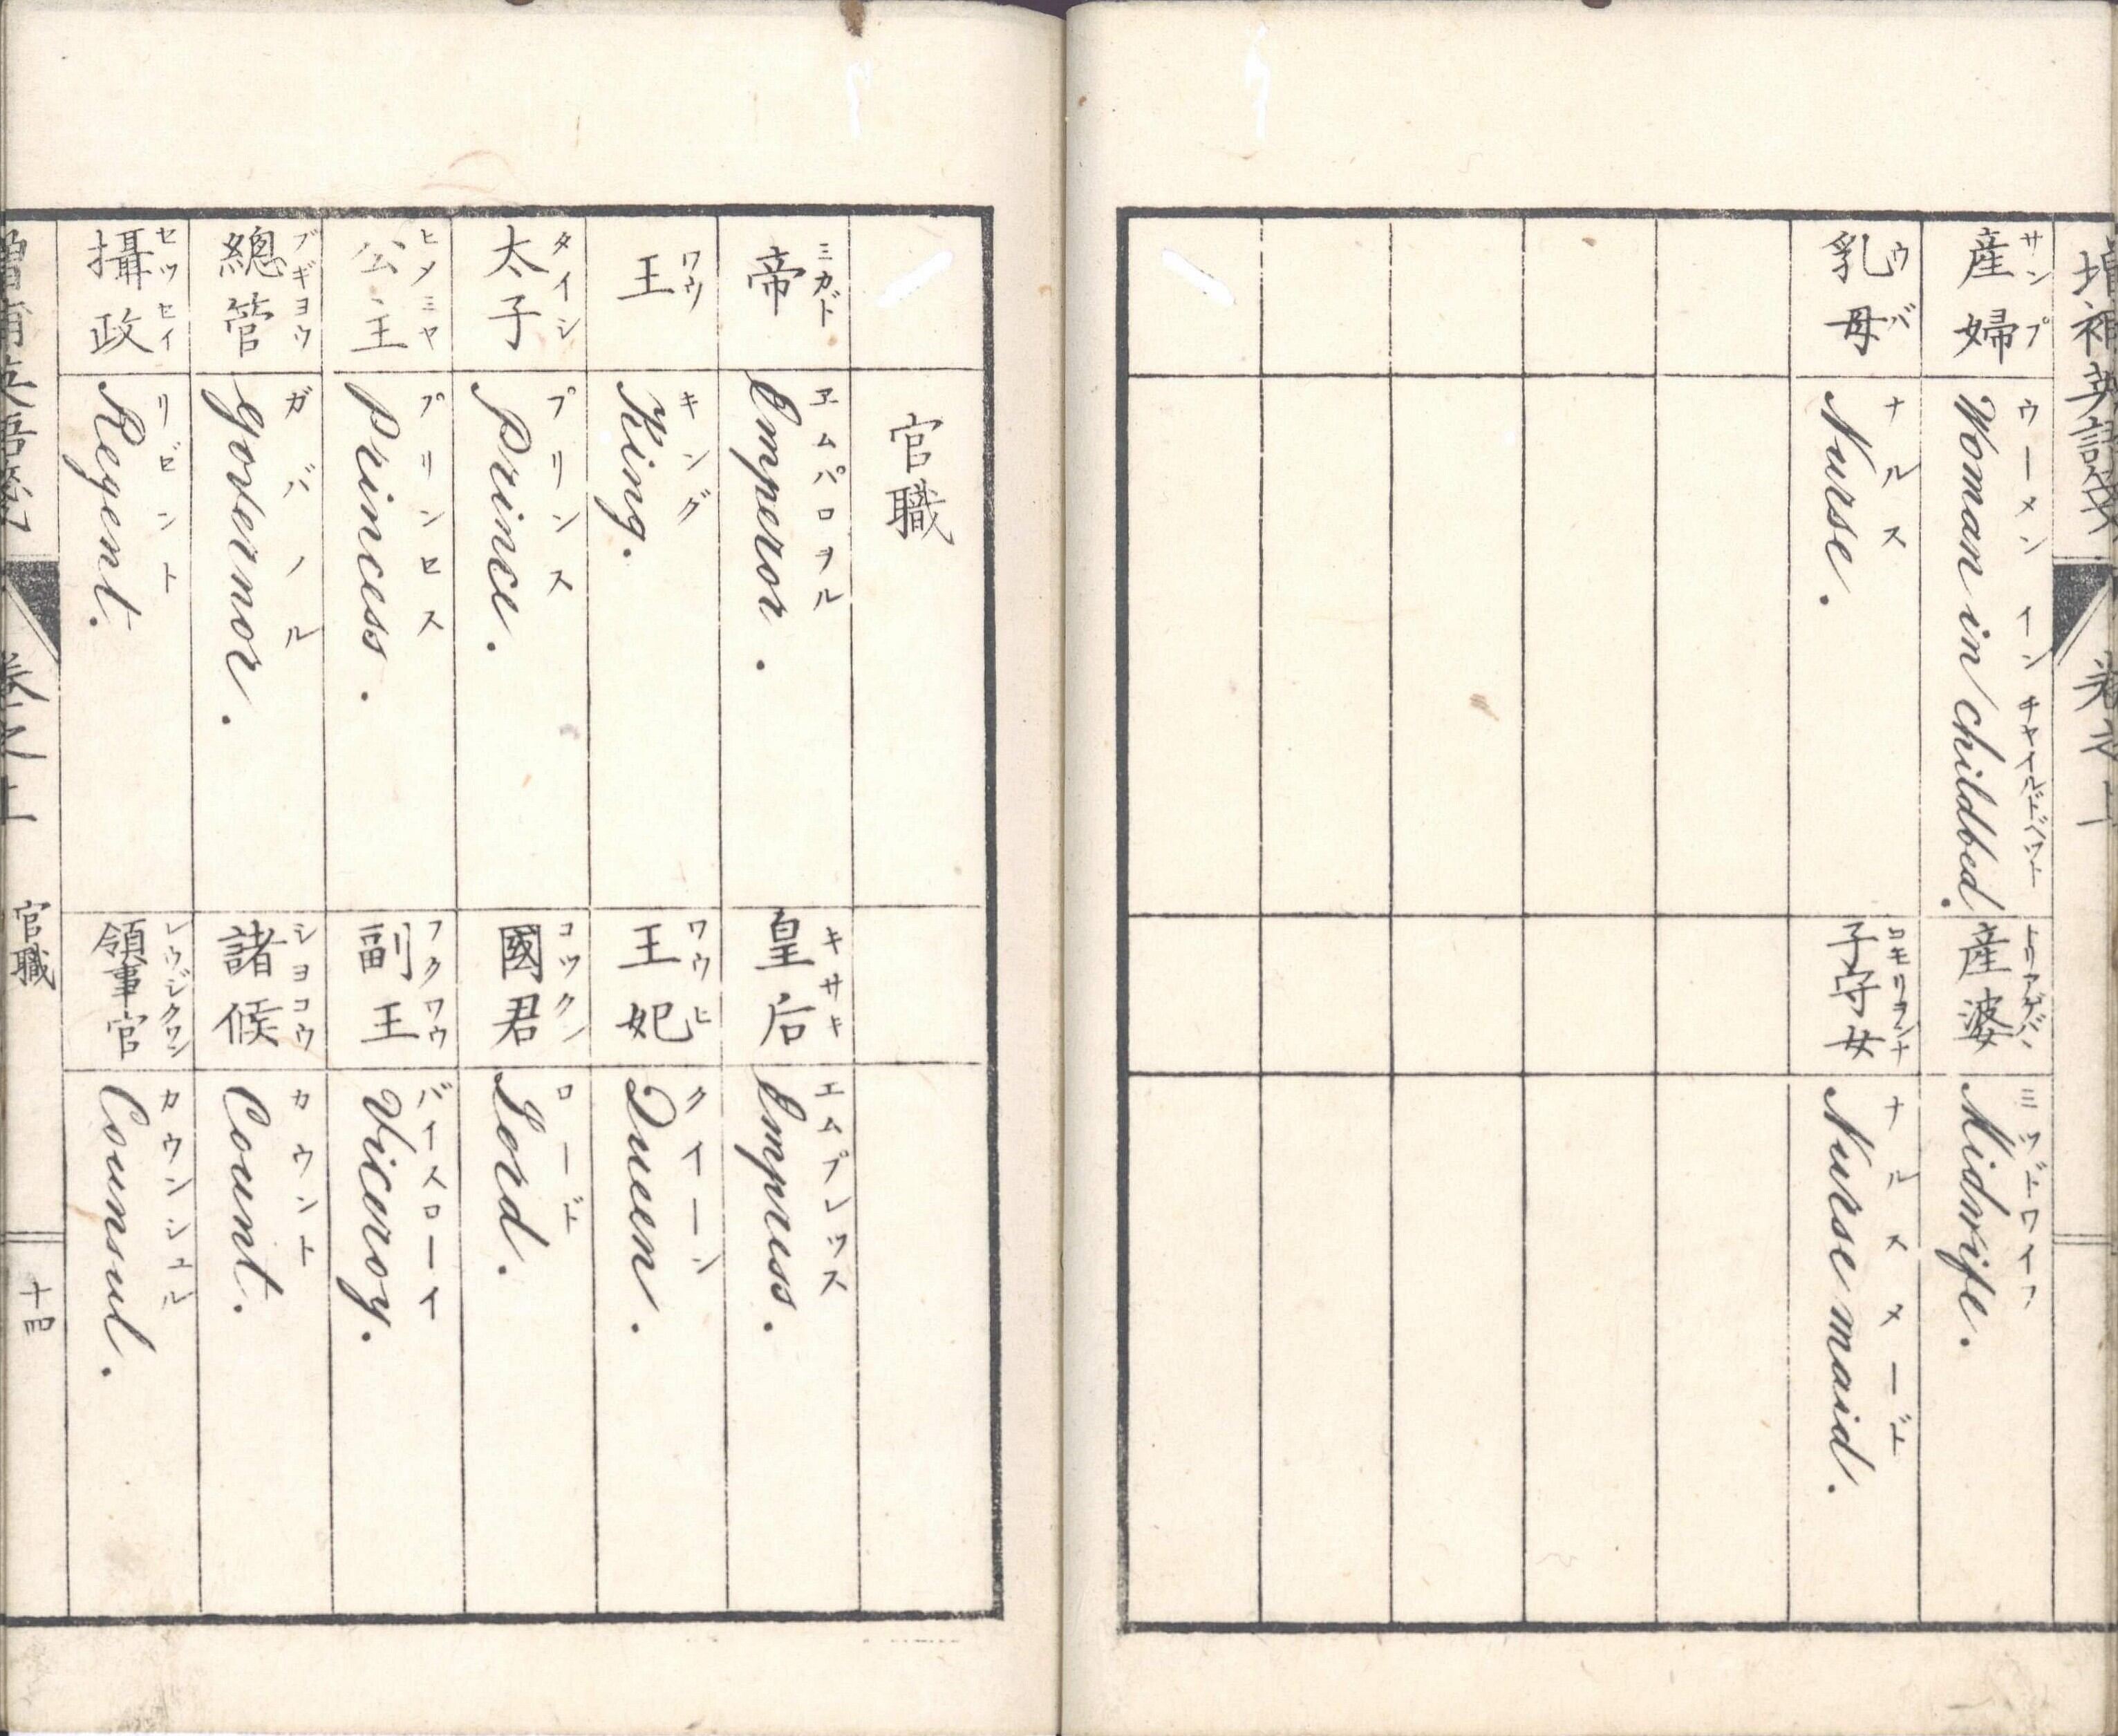 増補英語箋
卷之上
サンプ
産婦
ウーメン イン チャイルドベツト
Woman in childbed.
トリアゲバヾ
産婆
ミツドワイフ
Midwife.
ウバ
乳母
ナルス
Nurse.
コモリヲンナ
子守女
ナルスメード
Nurse maid.
官職
ミカド
帝
エムパロヲル
Emperor.
キサキ
皇后
エムプレツス
Empress.
ワウ
王
キング
King.
ワウヒ
王妃
クイーン
Queen.
タイシ
太子
プリンス
Prince.
コツクン
國君
ロード
Lord.
ヒメミヤ
公主
プリンセス
Princess.
フクワウ
副王
バイスローイ
Viceroy.
ブギヨウ
總管
ガバノル
Governor.
シヨコウ
諸候
カウント
Count.
セツセイ
攝政
リゼント
Regent.
レウジクワン
領事官
カウンシュル
Counsul.
増補英語箋
卷之上
官職
十四